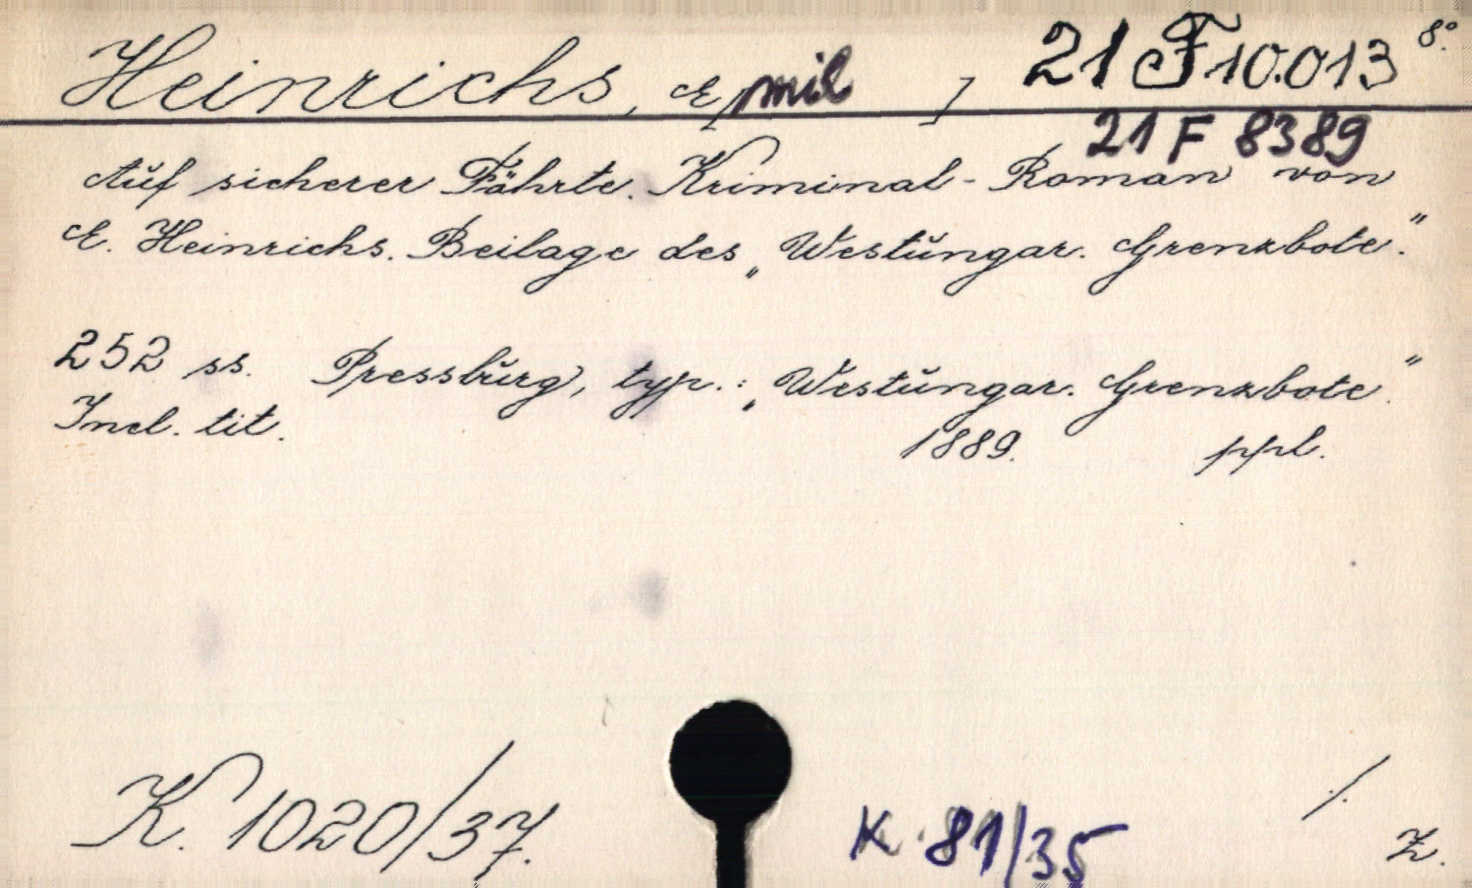 Heinrichs, E[mil ] 21 F 10.013 8°.
21 F 8389
Auf sicherer Fährte. Kriminal-Roman von
E. Heinrichs. Beilage des „Westŭngar. Grenzbote."
252 ss. Pressbŭrg, typ.: „Westŭngar. Grenzbote."
Incl. tit. 1889. ppl.
K. 1020/37. K. 81/35 ·/·
Z.